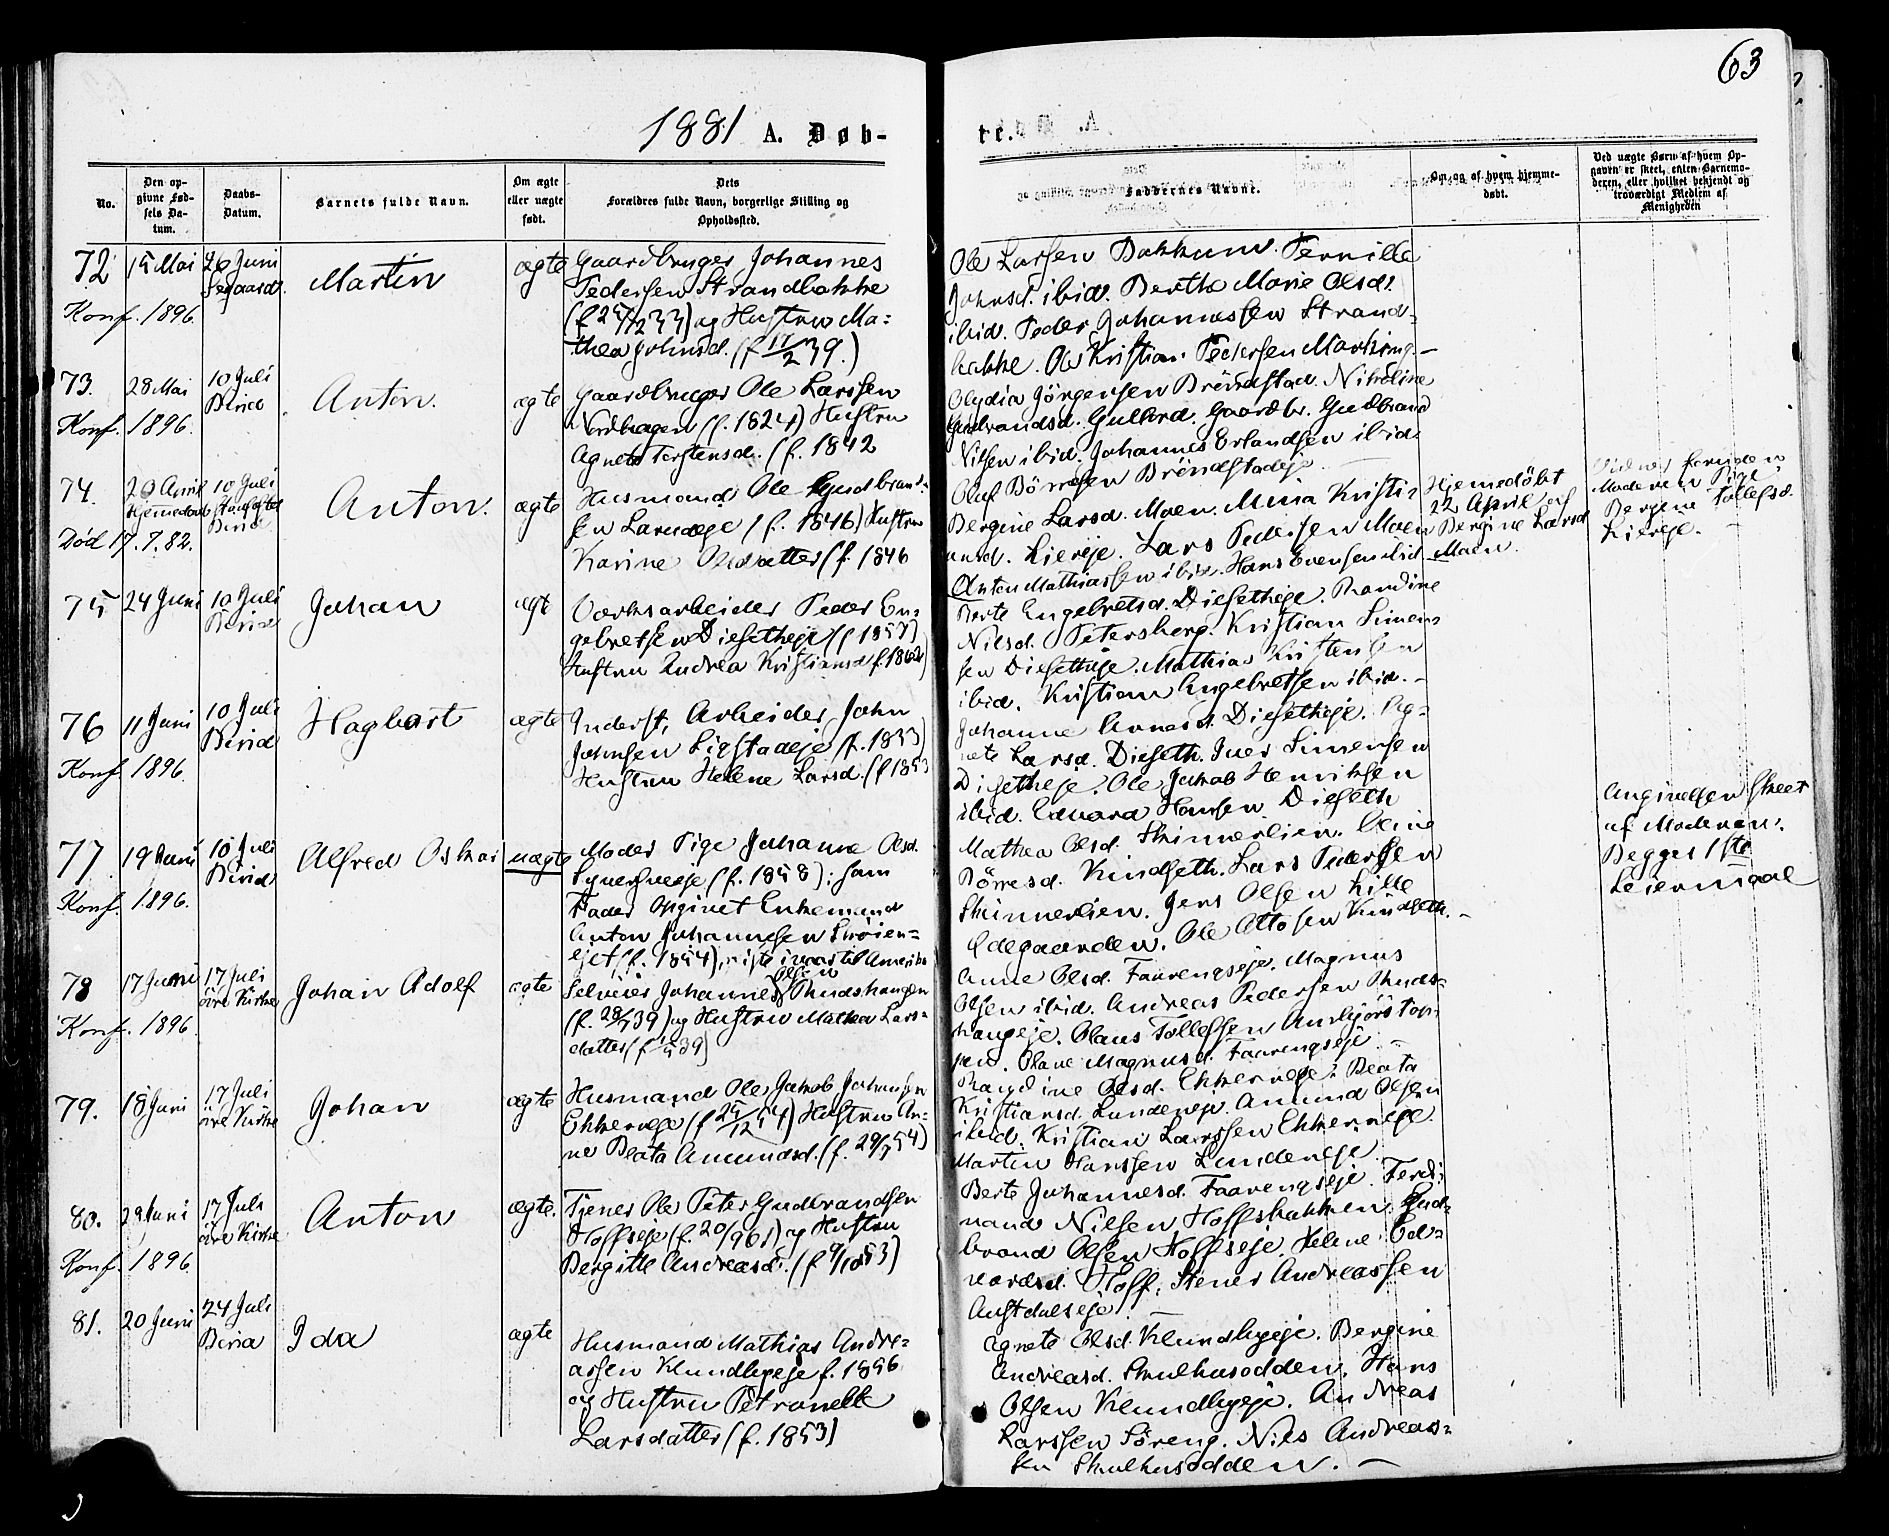 63
1881 A. Døb-
te.
No.
Den op-
givne Fød-
sels Da-
tum.
Daabs-
Datum.
Barnets fulde Navn.
Om ægte
eller uægte
født.
Dets
Forældres fulde Navn, borgerlige Stilling og
Opholdssted.
Faddernes Navne.
Om og af hvem hjemme-
døbt.
Ved uægte Børn af hvem Op-
gaven er skeet, enten Barnemo-
deren, eller hvilket bekjendt og
troværdigt Medlem af
Menigheden
72
15 Mai
26 Juni
Martin
ægte
Gaardbruger Johannes
Pedersen Strandbakke
og Hustru Ma-
thea Johnsd. (f 17/2 39.)
Konf. 1896.
Ole Larsen Bakkum. Pernille
Johnsd. ibid. Berthe Marie Olsd.
ibid. Peder Johannessen Strand-
bakke. Ole Kristian Pedersen
73.
28 Mai
10 Juli
Birid
Anton.
ægte
Gaardbruger Ole Larssen
(f. 1824) Hustru
Agnete Torstensd. (f. 1842
Konf. 1896.
Olydia Jörgensen Bröndstad. Nikoline
Gudbrandsd. Gaardbr. Gudbrand
Nilsen ibid. Johannes Erlandsen ibid.
Oluf Börresen
74.
20 April
Hjemedøb
10 Juli
Birid
Anton.
ægte
Husmand Ole Gudbrand-
sen (f. 1846) Hustru
Karine Olsdatter (f. 1846
Død 17.7.82.
Bergine Larsd. Moen. Mina Kristi-
ansd. Liereje. Lars Pedersen Moen
Anton Mathiassen ibid. Hans Evensen ibid
Hjemedöbt
22 April af
Bergine Larsd
Moen.
Moderen Pige
Bergine Tollefsd.
Liereje.
75
24 Juni
10 Juli
Birid
Johan
ægte
Værksarbeider Peder En-
gebretsen Diesetheje (f 1857)
Hustru Andrea Kristiansd
Berte Engebretsd. Diesetheje. Randine
Nilsd. Petersberg. Kristian Simen-
sen Diesetheje. Mathias Kristensen
ibid. Kristian Engebretsen ibid.
76
11 Juni
10 Juli
Birid
Hagbart
ægte
Inderst, Arbeider John
Johnsen (f. 1853)
Hustru Helene Larsd. (f 1853
Konf. 1896.
Johanne Arnesd. Diesetheje. Ag-
nete Larsd. Dieseth. Iver Simensen
Diesetheje. Ole Jakob Henriksen
ibid. Edvard Hansen Dieseth
77
19 Juni
10 Juli
Birid
Alfred Oskar
uægte
Moder Pige Johanne Olsd.
(f. 1858); som
Fader Opgivet Enkemand
Anton Johannesen
(f. 1854), til Amerika
Konf. 1896.
Mathea Olsd. Skinnerlien. Oline
Börresd. Kindseth. Lars Pedersen
Skinnerlien. Jens Olsen Lille
Ødegaarden. Ole Ottosen Kindseth.
Angivelsen skeet
af Moderen.
Begges 1ste
Leiermaal
78
17 Juni
17 Juli
øvre Kirke
Johan Adolf
ægte
Selveier Johannes Olsen
og Hustru Mathea Lars-
datter
Konf. 1896.
Anne Olsd. Faarengseje. Magnus
Olsen ibid. Andreas Pedersen
Olaus Tollefsen
Magnusd. Faarengseje.
79.
18 Juni
17 Juli
øvre Kirke
Johan
ægte
Husmand Ole Jakob Johansen
Hustru An-
ne Beata Amundsd.
Randine Olsd. Beata
Kristiansd. Lundeneje. Amund Olsen
ibid. Kristian Larssen
Martin Hanssen Lundeneje.
80.
17 Juli
øvre Kirke
Anton
ægte.
Tjener Ole Peter Gudbrandsen
Hoffseje og Hustru
Bergitte Andreasd.
Konf. 1896.
Berte Johannesd. Faarengseje. Ferdi-
nand Nilsen Hoffsbakken. Gud-
brand Olsen Hoffseje. Helene Ed-
vardsd. Hoff. Stener Andreassen
81.
20 Juni
24 Juli
Birid
Ida
ægte
Husmand Mathias Andre-
assen Klundbyeje f. 1856
og Hustru Petronelle
Larsdatter (f. 1853)
Agnete Olsd. Klundbyeje. Bergine
Andreasd. Skulhusodden. Hans
Olsen Klundbyeje. Andreas
Larssen Söreng. Nils Andreas-
sen Skulhusodden.